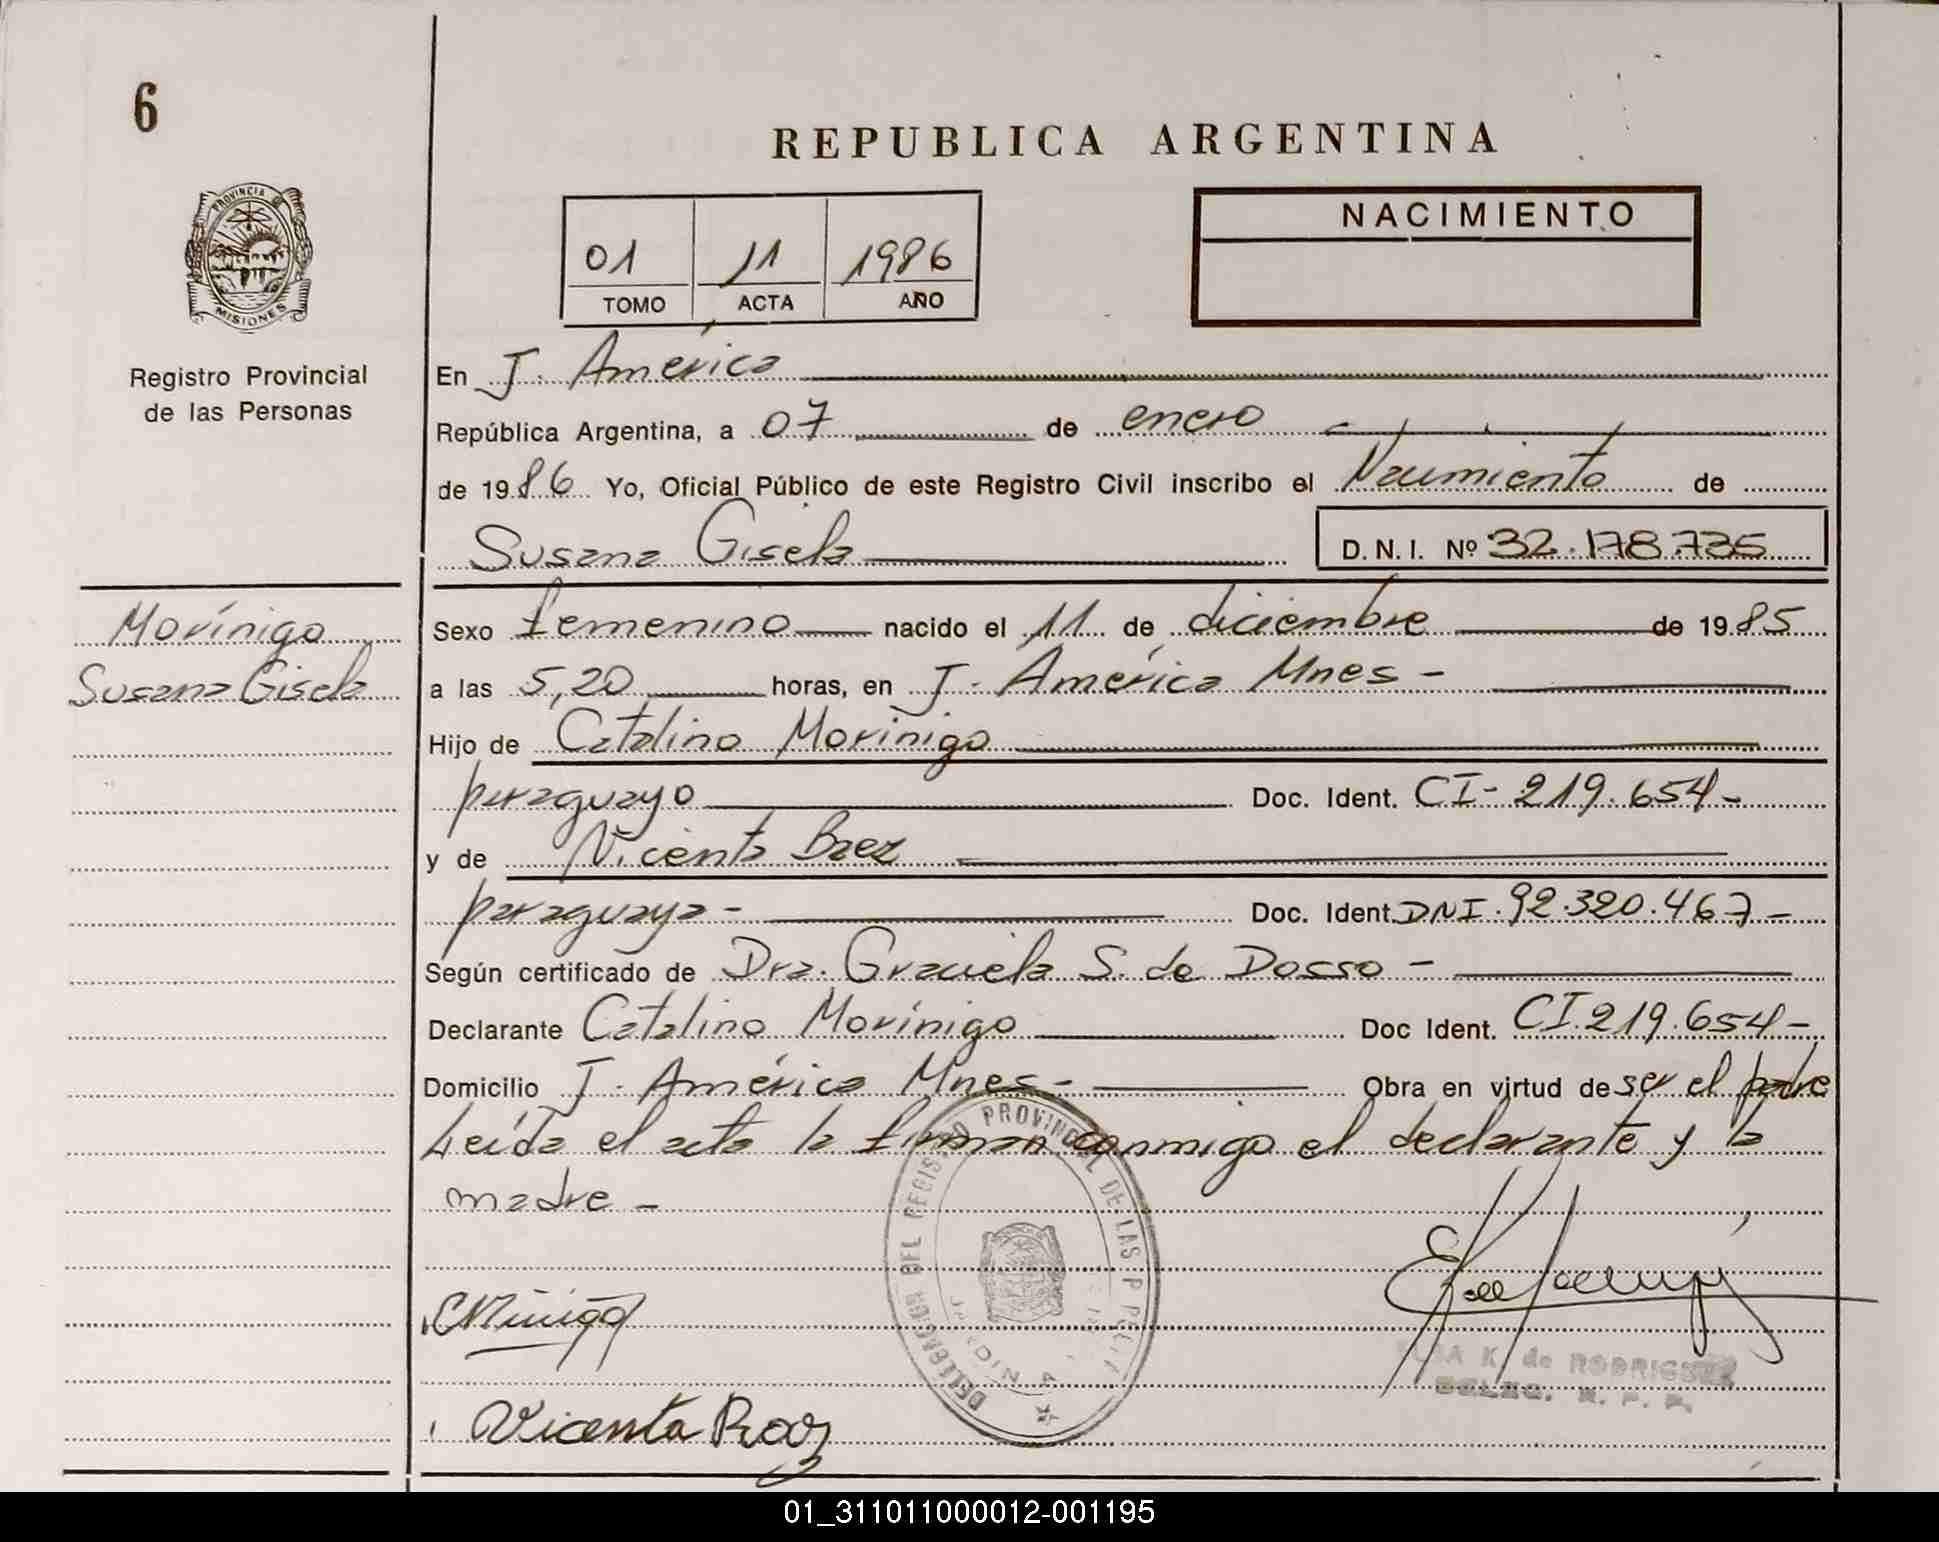 6
REPUBLICA ARGENTINA
PROVINCIA
MISIONES
Registro Provincial
de las Personas
01 11 1986
TOMO ACTA AÑO
NACIMIENTO
En J. América
República Argentina, a 07 de enero
de 1986 Yo, Oficial Público de este Registro Civil inscribo el Nacimiento de
Susana Gisela D.N.I. Nº 32.178.735
Morínigo
Susana Gisela
Sexo femenino nacido el 11 de diciembre de 1985
a las 5,20 horas, en J. América Mnes -
Hijo de Catalino Morinigo
paraguayo Doc. Ident. CI- 219.654-
y de Vicenta Baez
paraguaya - Doc. Ident. DNI. 92.320.467-
Según certificado de Dra. Graciela S. de Dosso -
Declarante Catalino Morínigo Doc Ident. CI.219.654-
Domicilio J. América Mnes - Obra en virtud de ser el padre
Leída el acta la firman conmigo el declarante y la
madre -
DEL REGISTRO PROVINCIAL DE LAS P
K. de RODRIGUEZ
DELEG. R. P. P.
Vicenta
01_311011000012-001195